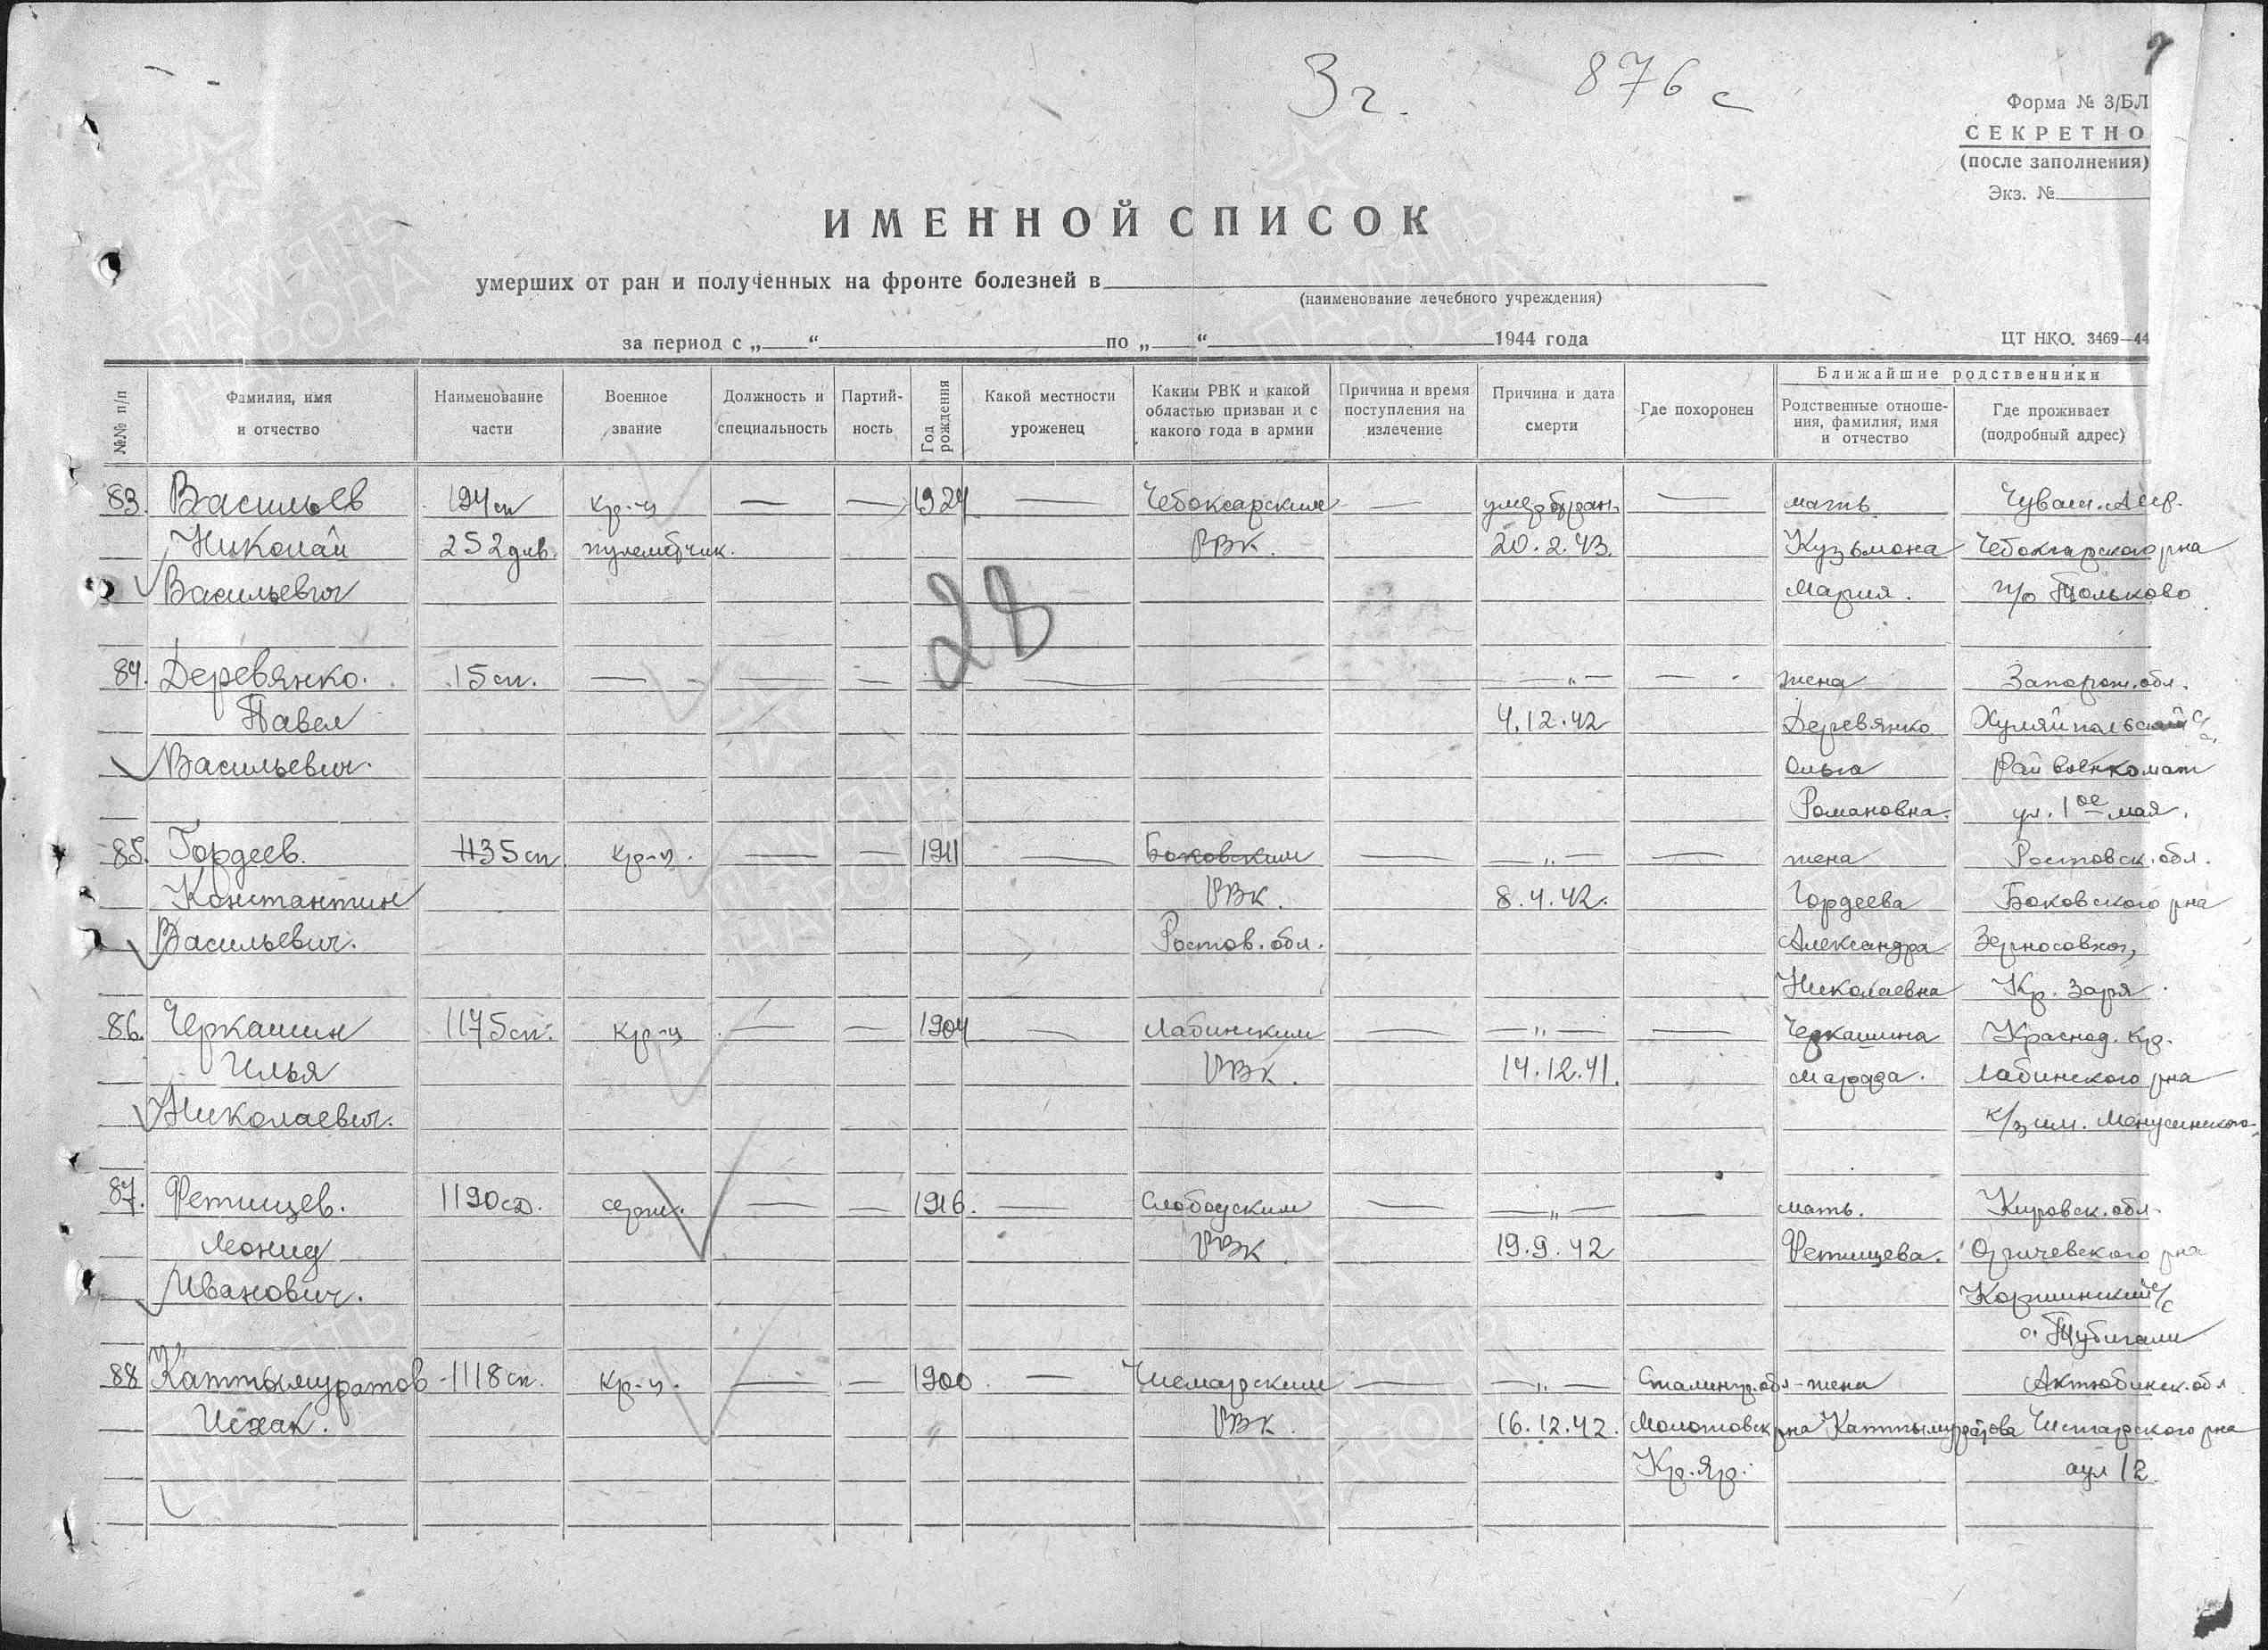 3г. 876с
Форма № 3/БЛ
СЕКРЕТНО
(после заполнения)
Экз. №
ИМЕННОЙ СПИСОК
умерших от ран и полученных на фронте болезней в
(наименование лечебного учреждения)
за период с „ “ по „ “ 1944 года
ЦТ НКО. 3469—44
№№ п/п
Фамилия, имя и отчество
Наименование части
Военное звание
Должность и специальность
Партий-
ность
Год рождения
Какой местности уроженец
Каким РВК и какой
областью призван и с
какого года в армии
Причина и время
поступления на
излечение
Причина и дата
смерти
Где похоронен
Ближайшие родственники
Родственные отноше-
ния, фамилия, имя
и отчество
Где проживает
(подробный адрес)
83. Васильев 194 сп кр-ц — — 1924 — Чебоксарским — умер от ран. — мать Чуваш. АССР.
Николай 252 див. пулеметчик. РВК. 20.2.43. Кузьмона Чебоксарского р-на
Васильевич Мария. п/о Тюльково
28
84. Деревянко. 15 сп. — — — — — — — „ — — жена Запорож. обл.
Павел 4.12.42 Деревянко
Васильевич. Ольга Райвоенкомат
Романовна. ул. 1ое мая.
85. Гордеев. 1135 сп кр-ц. — — 1911 — Боковским — — „ — — жена Ростовск. обл.
Константин РВК. 8.4.42. Гордеева Боковского р-на
Васильевич. Ростов. обл. Александра Зерносовхоз,
Николаевна Кр. Заря.
86. Черкашин 1175 сп. кр-ц — — 1904 — Лабинским — — „ — — Черкашина Краснод. кр.
Илья РВК. 14.12.41. Лабинского р-на
Николаевич. к/з им.
87. Фетищев. 1190 сп. серж. — — 1916. — Слободским — — „ — — мать. Кировск. обл.
Леонид РВК 19.9.42 Фетищева. Оричевского р-на
Иванович. Коршинский с/с
88 Каттымуратов 1118 сп. кр-ц. — — 1900 — — — „ — Сталингр. обл жена Актюбинск. обл
Исхак. РВК 16.12.42. Молотовск р-на Каттымуратова
Кр. Яр. аул 12.
ПАМЯТЬ
НАРОДА